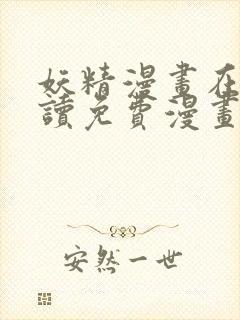 妖精漫畫在
讀免費漫畫
安然一世